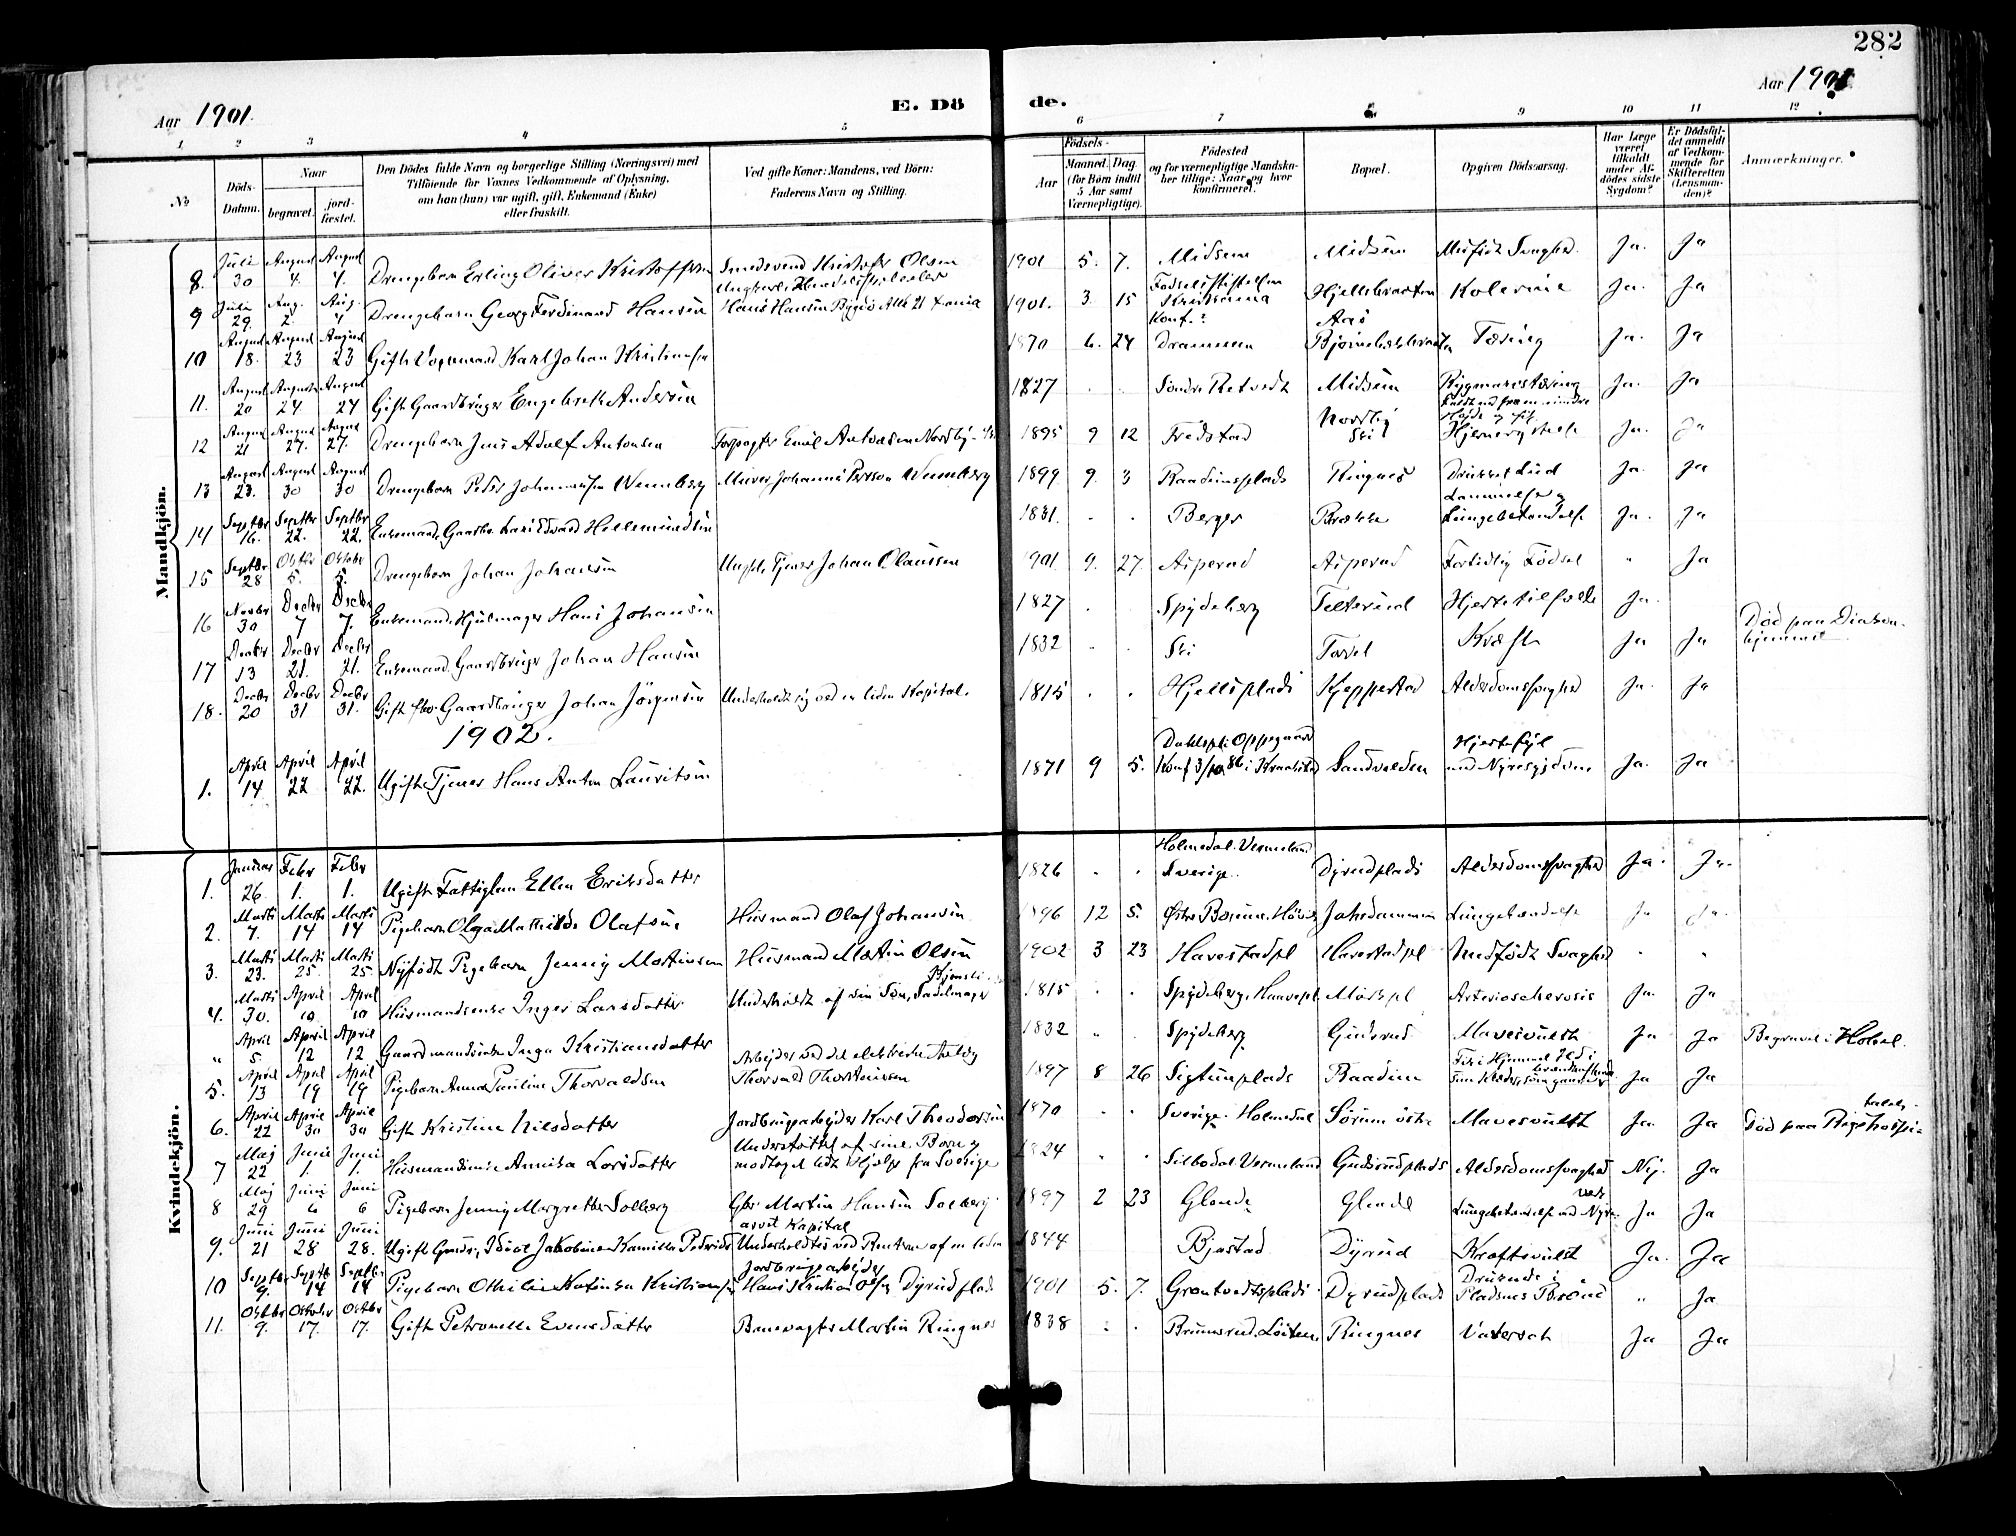 282
Aar 1901.
E. Dö
de.
Aar 1901
1 2 3 4 5 6 7 8 9 10 11 12
No
Döds-Datum.
Naar
begravet.
jord-fæstet.
Den Dödes fulde Navn og borgerlige Stilling (Næringsvei) med
Tilföiende for Voxnes Vedkommende af Oplysning,
om han (hun) var ugift, gift, Enkemand (Enke)
eller fraskilt.
Ved gifte Koner: Mandens, ved Börn:
Faderens Navn og Stilling.
Födsels-
Aar
Maaned.
Dag.
(for Börn indtil
5 Aar samt
Værnepligtige).
Födested
og for værnepligtige Mandskaber tillige: Naar og hvor
konfirmeret.
Bopæl.
Opgiven Dödsaarsag.
Har Læge
været
tilkaldt
under Afdödes sidste
Sygdom?
Er Dödsfaldet anmeldt
af Vedkommende for
Skifteretten
(Lensmanden)?
Anmærkninger.
Mandkjön.
8. Juli 30 August 4. August 4. Drengebarn Erling Oliver Kristoffersen Smedsvend Kristoffer Olsen 1901 5. 7. Midsem Midsem Medfødt Svaghed. Ja. Ja
9 Juli 29. Aug. 2. Aug. 4 Drengebarn Georg Ferdinand Hansen Hans Hansen Bygdö Alle 21 Xania 1901. 3. 15 Fødselsstiftelsen Kristiania Hjellebraaten Kolerine Ja. Ja
10 August 18. August 23 August 23 Gift Karl Johan Kristiansen 1870 6. 24 Konf.? Drammen Aas Tæring Ja. Ja
11. August 20 August 24. August 24 Gift Gaardbruger Engebrett Andersen 1827 . . Søndre Retvedt Midsem Rygmarvstæring Ja. Ja
12 August 21 August 27. August 27. Drengebarn Jens Adolf Antonsen Forpagter Emil Antonsen Nordby 1895 9 12 Fredstad Nordby Ski Ja. Ja
13 August 23. August 30 August 30 Drengebarn Peder Johannessen Wennberg Murer Johannes Persson Wennberg 1899 9. 3 Raadimsplads Ringnes Drukket Lud Ja. Ja
14 Septbr 16. Septbr 22. Septbr 22. Enkemand, Hellemundsen 1831. . . Berger Brække Lammelse og Lungebetændelse Ja. Ja
15 Septbr 28 Oktbr 5. Oktober 5. Drengebarn Johan Johansen Ungk. Tjener Johan Olaussen 1901 9. 27 Asperud Asperud Fortidlig Fødsel " Ja
16 Novbr 30 Decbr 7 Decbr 7. Enkemand, Hjulmager Hans Johansen 1827 . . Spydeberg Hjertetilfælde Ja.
17 Decbr 13 Decbr 21. Decbr 21. Enkemand Gaardbruger Johan Hansen 1832 . . Ski Kræft Ja Ja Død paa Diakonhjemmet
18. Decbr 20 Decbr 31 Decbr 31. Gift fhv. Gaardbruger Johan Jörgensen Underholdt sig ved en liden Kapital. 1815 . . Hjellsplads Kjeppestad Alderdomssvaghed Ja. Ja
1902.
1. April 14 April 22 April 22. Ugift Tjener Hans Anton Lauritsen 1871 9 5. Oppegaard Konf 3/10 86 i Kraakstad Sandvolden Hjertefejl med Nyresygdom Ja. Ja
Kvindekjön.
1. Januar 26 Febr 1. Febr 1. Ugift Fattiglem Ellen Eriksdatter 1826 . . Holmedal. Vermeland Sverige. Dyrudplads Alderdomssvaghed Ja. Ja.
2. Marts 7. Marts 14 Marts 14 Pigebarn Olga Mathilde Olafsen Husmand Olaf Johansen 1896 12 5. Lungebetændelse Ja Ja.
3. Marts 23. Marts 25 Marts 25 Nyfødt Pigebarn Jenny Martinsen Husmand Martin Olsen 1902 3 23 Haverstadpl Haverstadpl Medfødt Svaghed " "
4. Marts 30. April 10 April 10 Husmandsenke Inger Larsdatter Underholdt af sin Søn, Sadelmager 1815 . . Spydeberg, Arterioscherosis Ja. Ja
" April 5. April 12 April 12 Gaardmandsenke Inga Kristiansdatter 1832 " . Spydeberg Gudsrud Mavesvulst Ja Ja Begravet i Hobøl.
5. April 13 April 19 April 19 Pigebarn Anna Pauline Thorvaldsen Arbejder ved det elektriske Anlæg Thorvald Thorstensen 1897 8 26 Sigtunplads Raadim Ja Ja
6. April 22 April 30 April 30 Gift Kristine Nilsdatter Jordbrugsarbejder Karl Theodorsen 1870 . . Sverige. Holmedal Sørum østre Mavesvulst Ja. Ja Død paa Rigshospitalet.
7 Maj 22 Juni 1. Juni 1. Husmandsenke Annika Larsdatter Understøttet af sine Børn og modtaget lidt Hjælp fra Sverige 1824 . . Silbodal. Vermeland Gudsrudplads Alderdomssvaghed Nej. Ja
8 Maj 29 Juni 6 Juni 6 Pigebarn Jenny Margrethe Solberg Gbr. Martin Hansen Solberg 1897 2 23 Glende Glende Ja Ja
9. Juni 21 Juni 28 Juni 28. Ugift Jakobine Kamilla Underholdtes ved Renten af en liden arvet Kapital 1844 Bjastad. Dyrud Kræftsvulst Ja. Ja
10 Septbr 9. Septbr 14 Septbr 14 Pigebarn Othilie Katinka Kristiansen Jordbrugsarbejder Hans Kristian Olsen Dyrudplads 1901 5. 7. Grøntvedtsplads Dyrudplads Druknede i Pladsens Brønd " Ja
11. Oktbr 9. Oktober 17. Oktbr 17. Gift Petronelle Evensdatter Banevogter Martin Ringnes 1838 . . Løiten Ringnes Vatersot Ja Ja